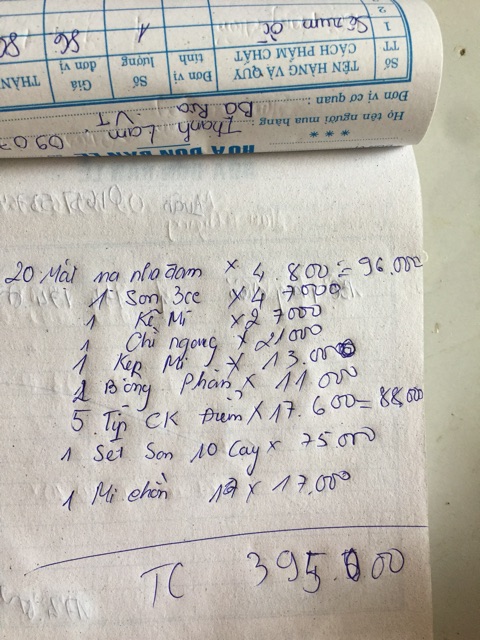 HÓA ĐƠN BÁN LẺ
***
Họ tên người mua hàng: Thanh Lam 09.0
Đơn vị cơ quan: Bà Rịa VT
Số TT TÊN HÀNG VÀ QUY CÁCH PHẨM CHẤT Đơn vị tính Số lượng Giá đơn vị THÀN
1 1 86. 86
2
20 Mặt nạ nha đam x 4.800 = 96.000
1 Son 3ce x 47000
1 Kẻ Mí x 27000
1 Chì ngang x 21000
1 Kẹp Mi x 13.000
1 Bông Phấn x 11 000
5 Típ CK Điểm x 17.600 = 88.000
1 Set Son 10 Cây x 75000
1 Mi chồn 17 x 17.000
TC 395.000